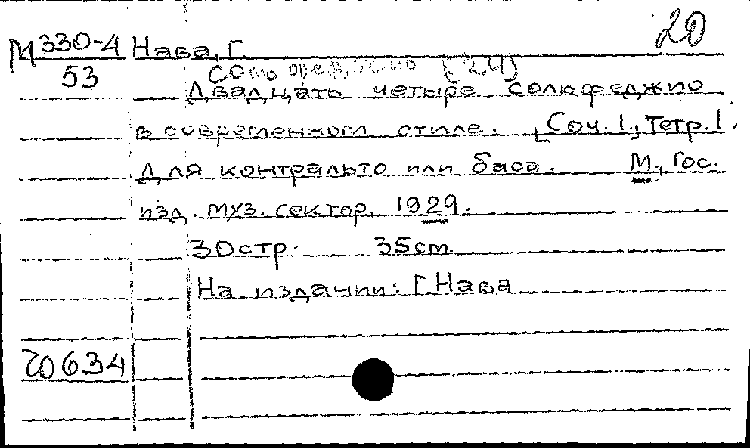 20
М 330-4 Нава, Г.
53
Сольфеджио (24)
Двадцать четыре солфеджио
в современном стиле. [Соч. 1, Тетр. 1.
Для контральто или баса. М., Гос.
изд. муз. сектор, 1929.
30 стр. 35 см.
На издании: Г Нава
20634